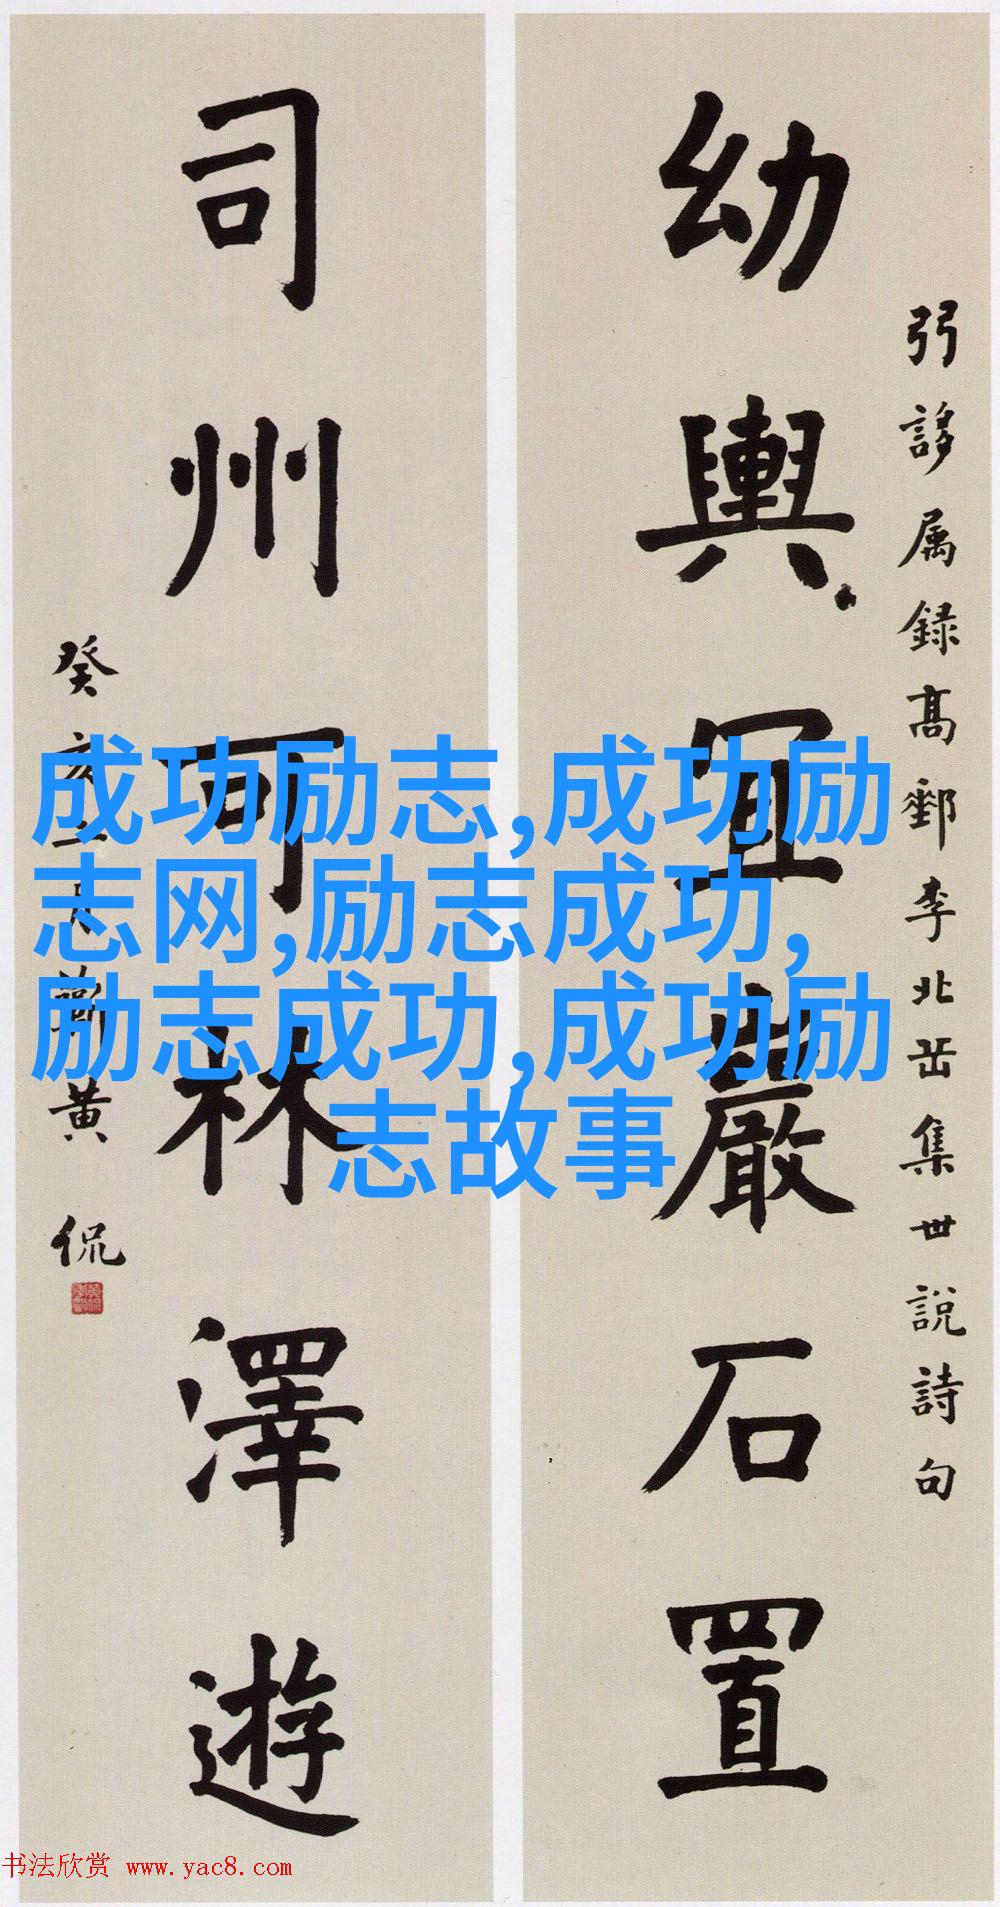 弜誃属録高郵李北岳集世說詩句
幼輿宜嚴石置
司州可林澤遊
癸亥
黄侃
成功励志,成功励
志网,励志成功,
励志成功,成功励
志故事
书法欣赏 www.yac8.com